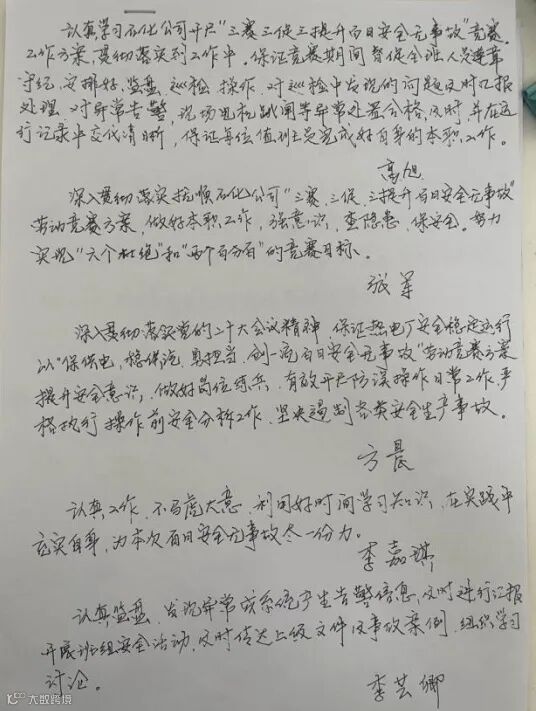 认真学习石化公司开展"三赛三促三提升百日安全无事故"竞赛
工作方案,贯彻落实到工作中。保证竞赛期间督促全班人员遵章
守纪,安排好,监盘,巡检,操作,对巡检中发现的问题及时汇报
处理,对异常告警,现场电机跳闸等异常处置合格,及时,并在运
行记录中交代清晰,保证每位值班员完成好自身的本职工作。
高旭
深入贯彻落实抚顺石化公司"三赛,三促,三提升百日安全无事故"
劳动竞赛方案,做好本职工作,强意识,查隐患,保安全。努力
实现"六个杜绝"和"两个百分百"的竞赛目标。
张军
深入贯彻落实党的二十大会议精神 保证热电厂安全稳定运行
以"保供电,稳供汽,勇担当,创一流百日安全无事故"劳动竞赛方案
提升安全意识,做好岗位练兵,有效开展防误操作日常工作,严
格执行操作前安全分析工作,坚决遏制各类安全生产事故。
方晨
认真工作,不马虎大意,利用好时间学习知识,在实践中
充实自身,为本次百日安全无事故尽一份力。
李嘉琪
认真监盘,发现异常或系统产生告警信息,及时进行汇报
开展班组安全活动,及时传达上级文件及事故案例,组织学习
讨论。
李芸卿
大数跨境